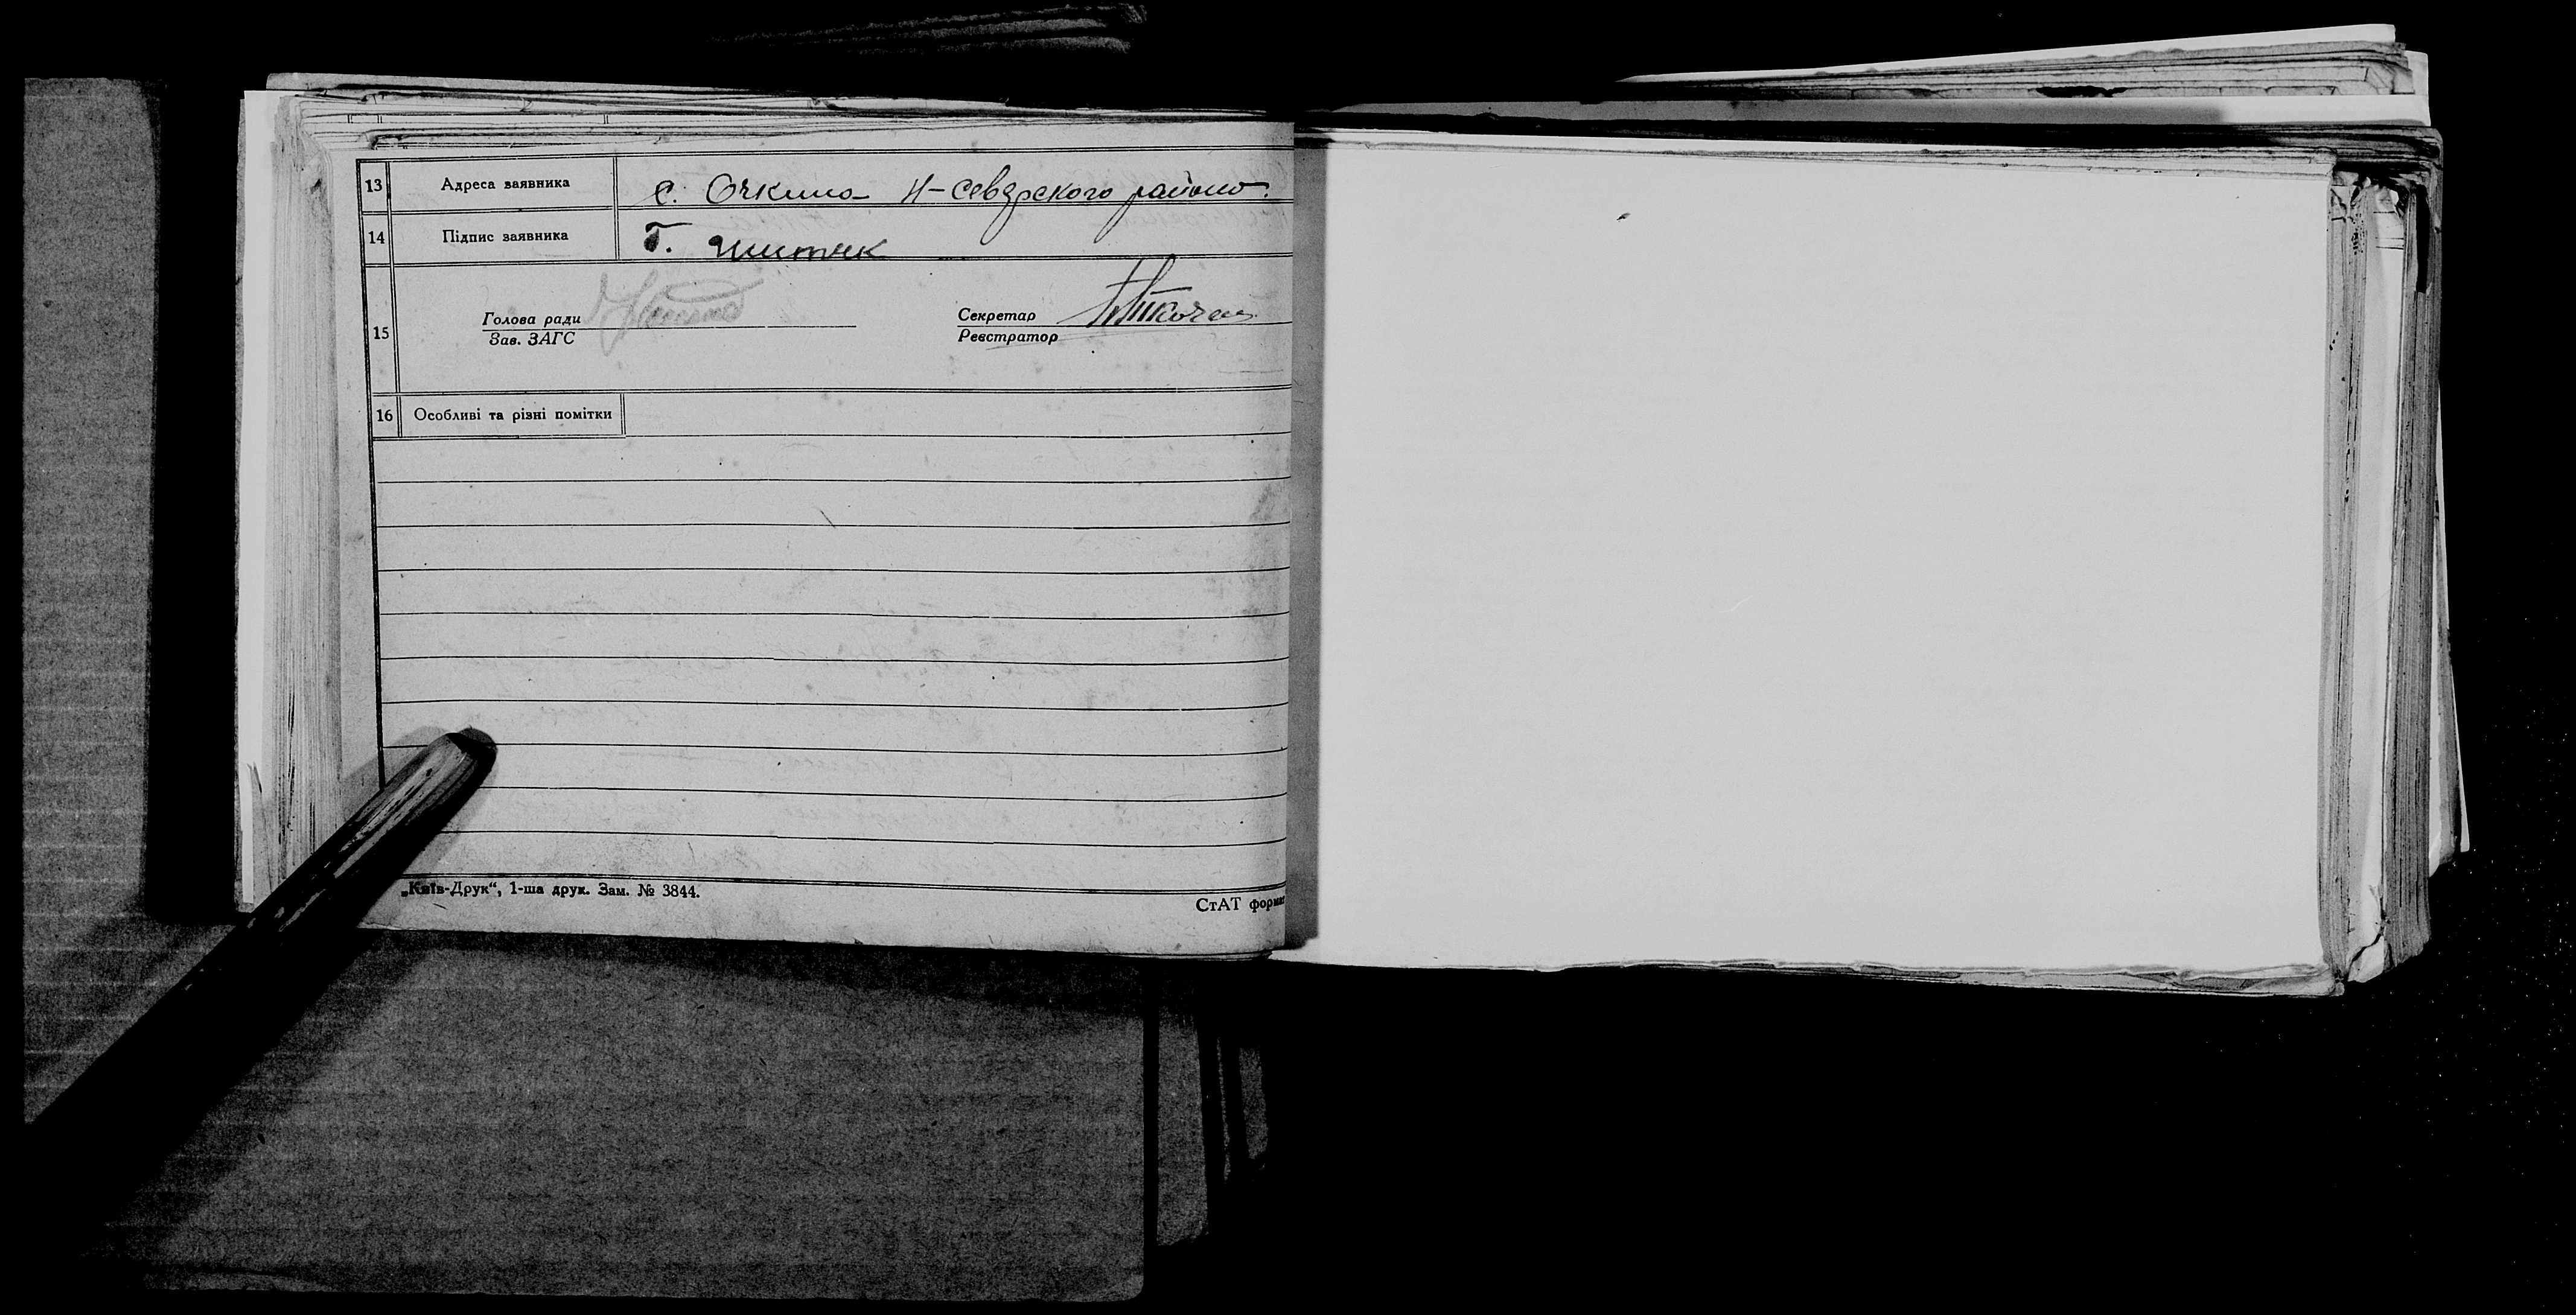 13 Адреса заявника с. Очкино Н-Северского района.
14 Підпис заявника Г.
15 Голова ради Секретар
Зав. ЗАГС Реєстратор
16 Особливі та різні помітки
„Київ-Друк“, 1-ша друк. Зам. № 3844.
СтАТ формат